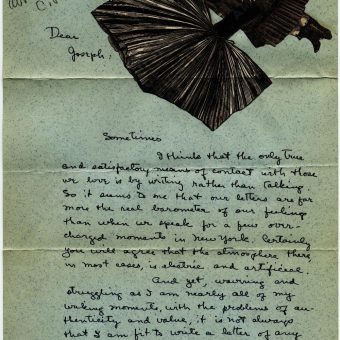 Dear
Joseph,
Sometimes
I think that the only true
and satisfactory means of contact with those
we love is by writing rather than talking.
So it seems to me that our letters are far
more the real barometer of our feelings
than when we speak for a few over-
charged moments in New York. Certainly
you will agree that the atmosphere there,
in most cases, is electric and artificial.
And yet, worrying and
struggling as I am nearly all of my
waking moments, with the problems of au-
thenticity and value, it is not always
that I am fit to write a letter of any